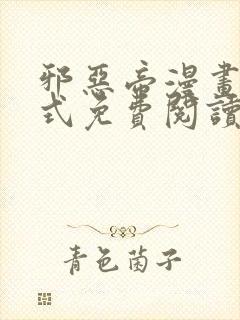 邪惡帝漫畫
式免費閱讀
青色菌子